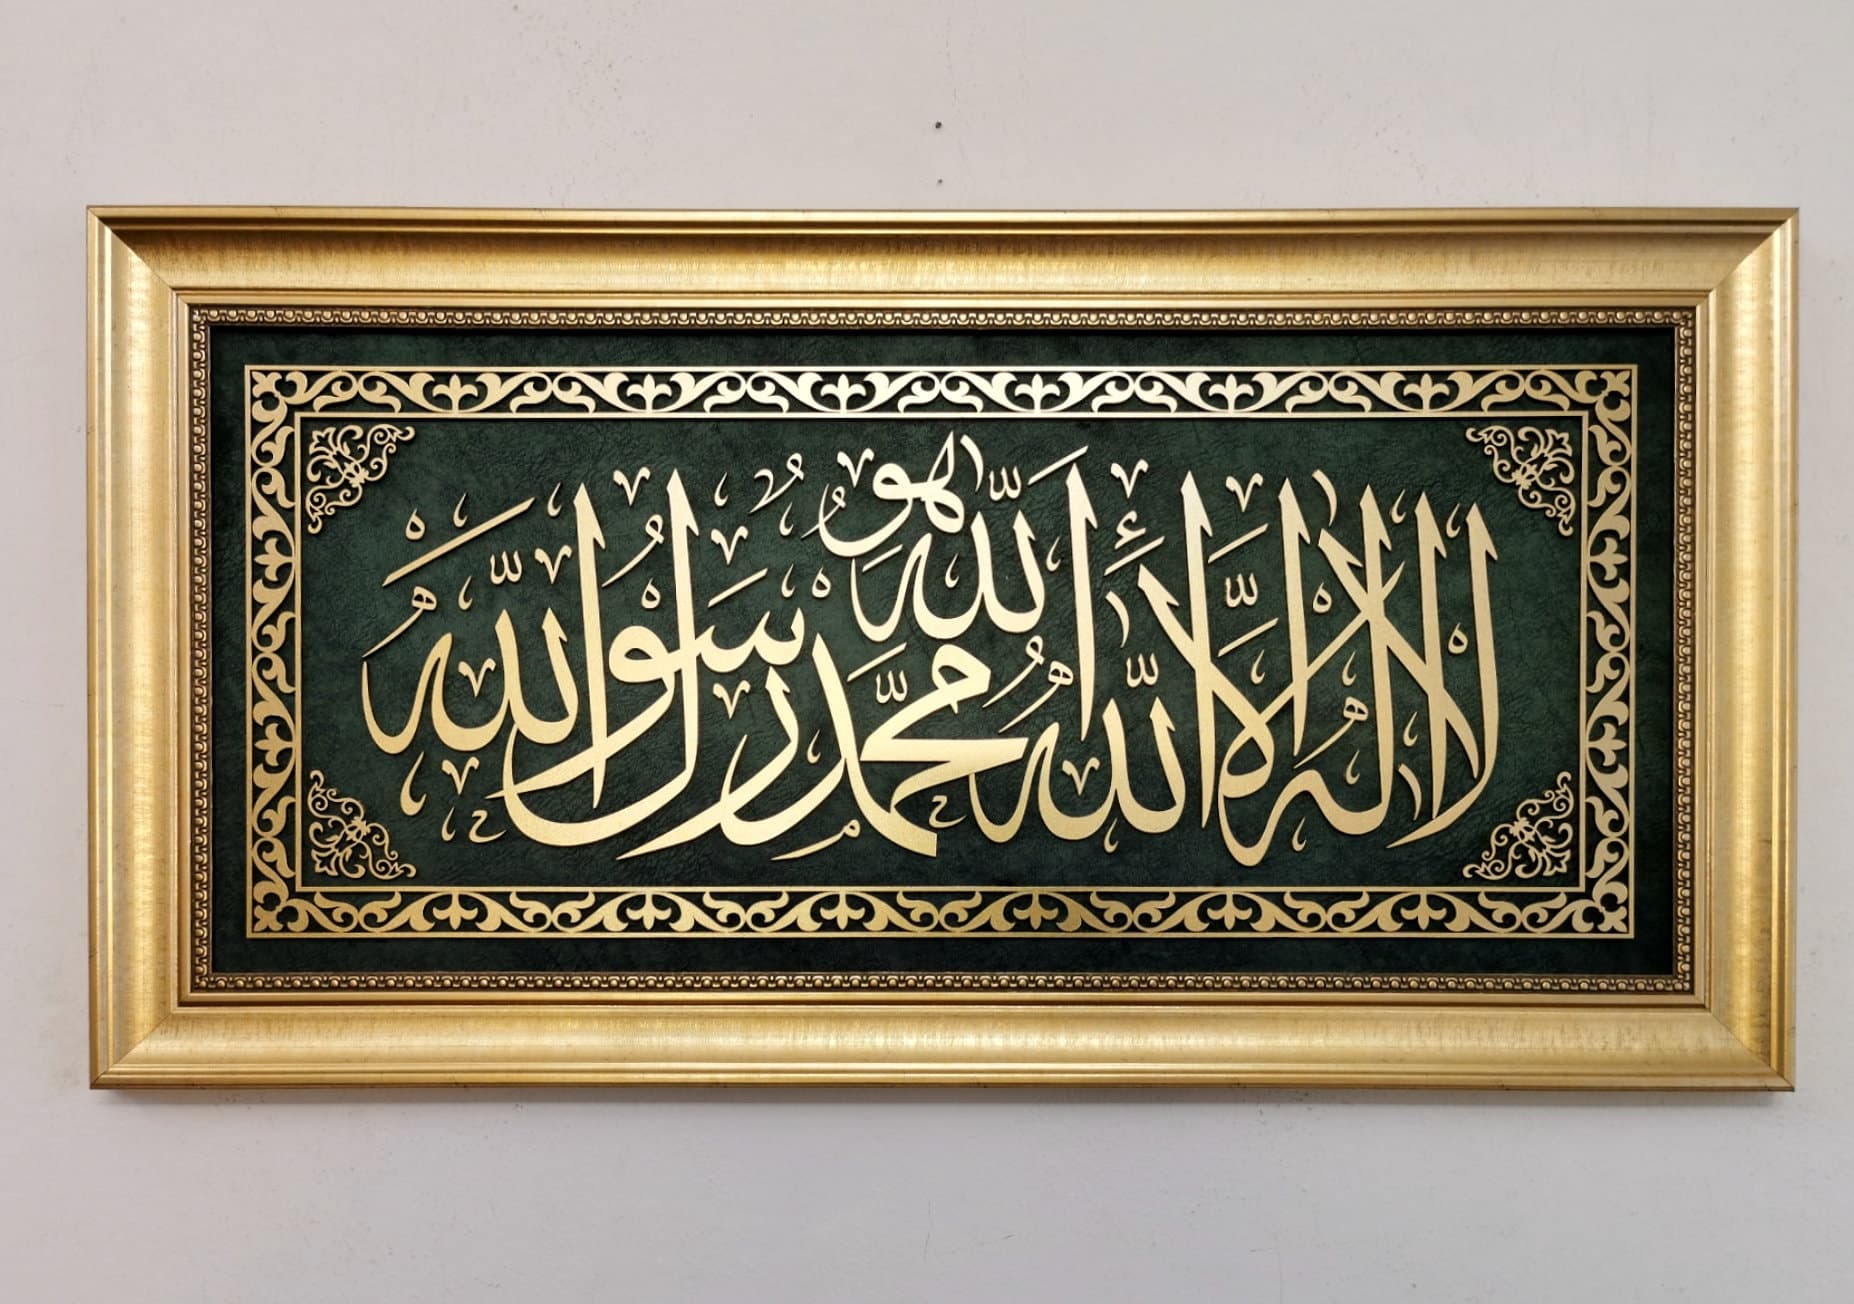 لا إله إلا الله محمد رسول الله
الله